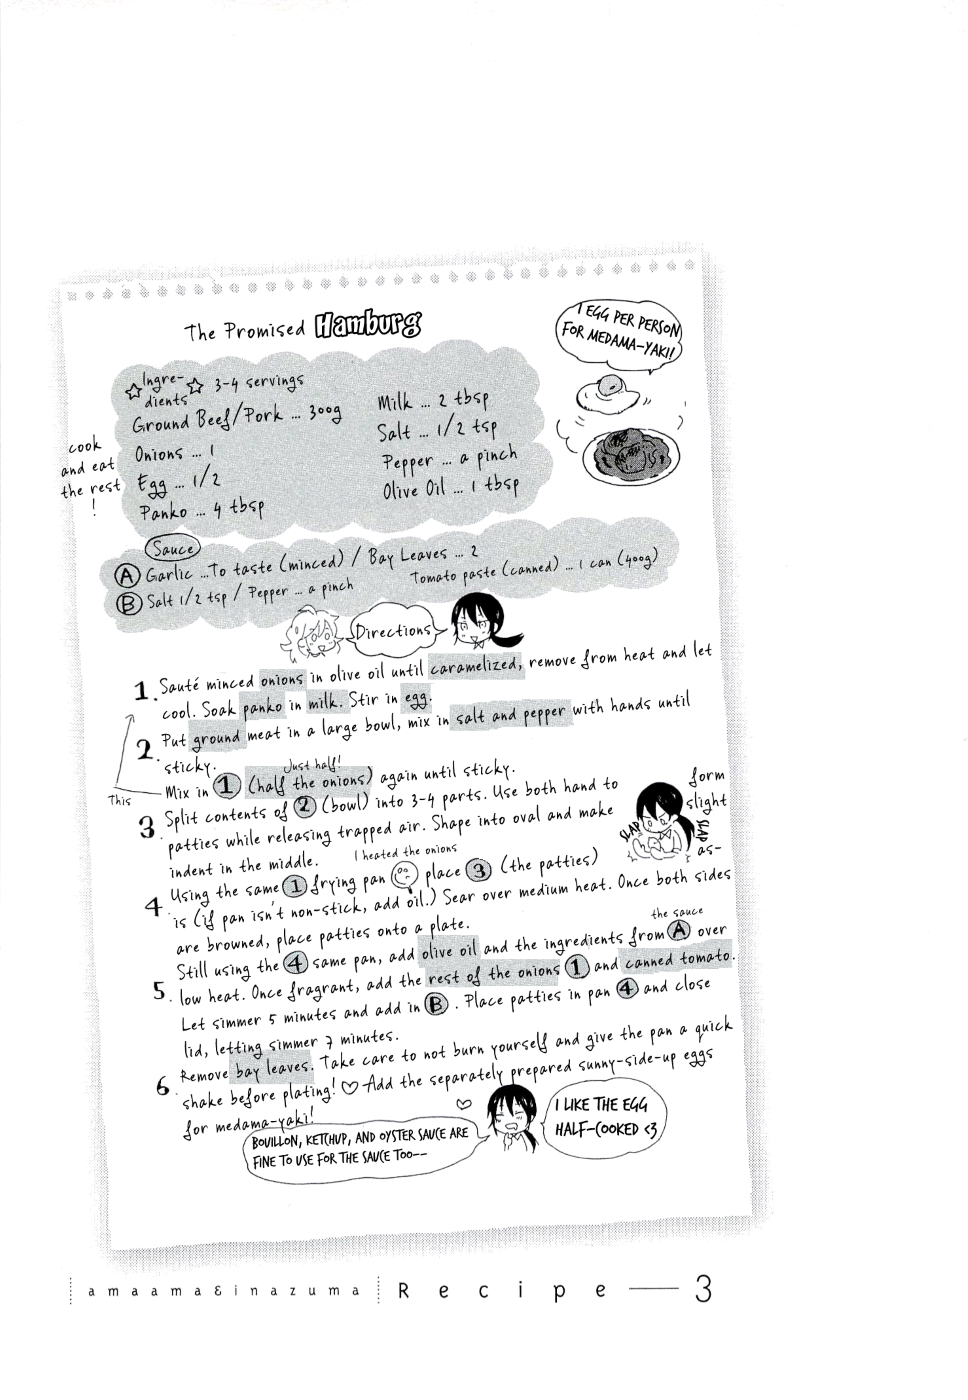 The Promised Hamburg
1 EGG PER PERSON
FOR MEDAMA-YAKI!
☆Ingre-
dients☆ 3-4 servings
Ground Beef/Pork ... 300g
Onions ... 1
Egg ... 1/2
Panko ... 4 tbsp
cook
and eat
the rest
!
Milk ... 2 tbsp
Salt ... 1/2 tsp
Pepper ... a pinch
Olive Oil ... 1 tbsp
Sauce
Ⓐ Garlic ...To taste (minced) / Bay Leaves ... 2
Tomato paste (canned) ... 1 can (400g)
Ⓑ Salt 1/2 tsp / Pepper ... a pinch
Directions
1. Sauté minced onions in olive oil until caramelized, remove from heat and let
cool. Soak panko in milk. Stir in egg.
2. Put ground meat in a large bowl, mix in salt and pepper with hands until
sticky.
Just half!
This
Mix in ① (half the onions) again until sticky.
3 Split contents of ② (bowl) into 3-4 parts. Use both hand to form
patties while releasing trapped air. Shape into oval and make slight
indent in the middle.
SLAP
SLAP
I heated the onions
4 Using the same ① frying pan place ③ (the patties) as-
is (if pan isn't non-stick, add oil.) Sear over medium heat. Once both sides
are browned, place patties onto a plate.
the sauce
5. Still using the ④ same pan, add olive oil and the ingredients from Ⓐ over
low heat. Once fragrant, add the rest of the onions ① and canned tomato.
Let simmer 5 minutes and add in Ⓑ. Place patties in pan ④ and close
lid, letting simmer 7 minutes.
6. Remove bay leaves. Take care to not burn yourself and give the pan a quick
shake before plating! ♡ Add the separately prepared sunny-side-up eggs
for medama-yaki!
BOUILLON, KETCHUP, AND OYSTER SAUCE ARE
FINE TO USE FOR THE SAUCE TOO--
I LIKE THE EGG
HALF-COOKED <3
amaama&inazuma Recipe — 3